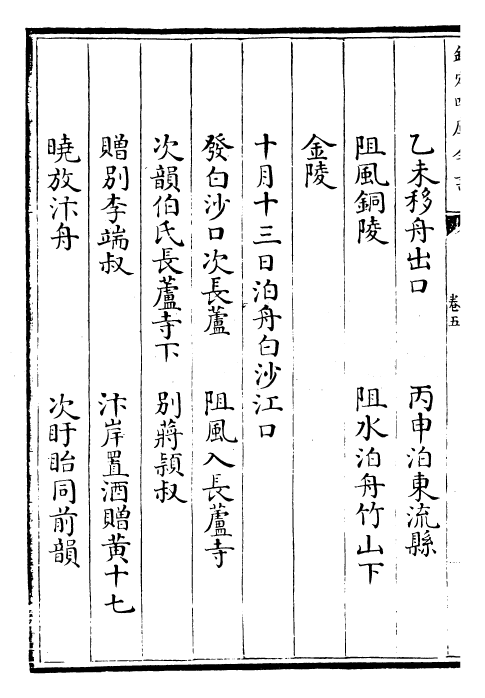 欽定四庫全書
卷五
乙未移舟出口　丙申泊東流縣
阻風銅陵　阻水泊舟竹山下
金陵
十月十三日泊舟白沙江口
發白沙口次長蘆　阻風入長蘆寺
次韻伯氏長蘆寺下　別蔣頴叔
贈別李端叔　汴岸置酒贈黄十七
曉放汴舟　次盱眙同前韻